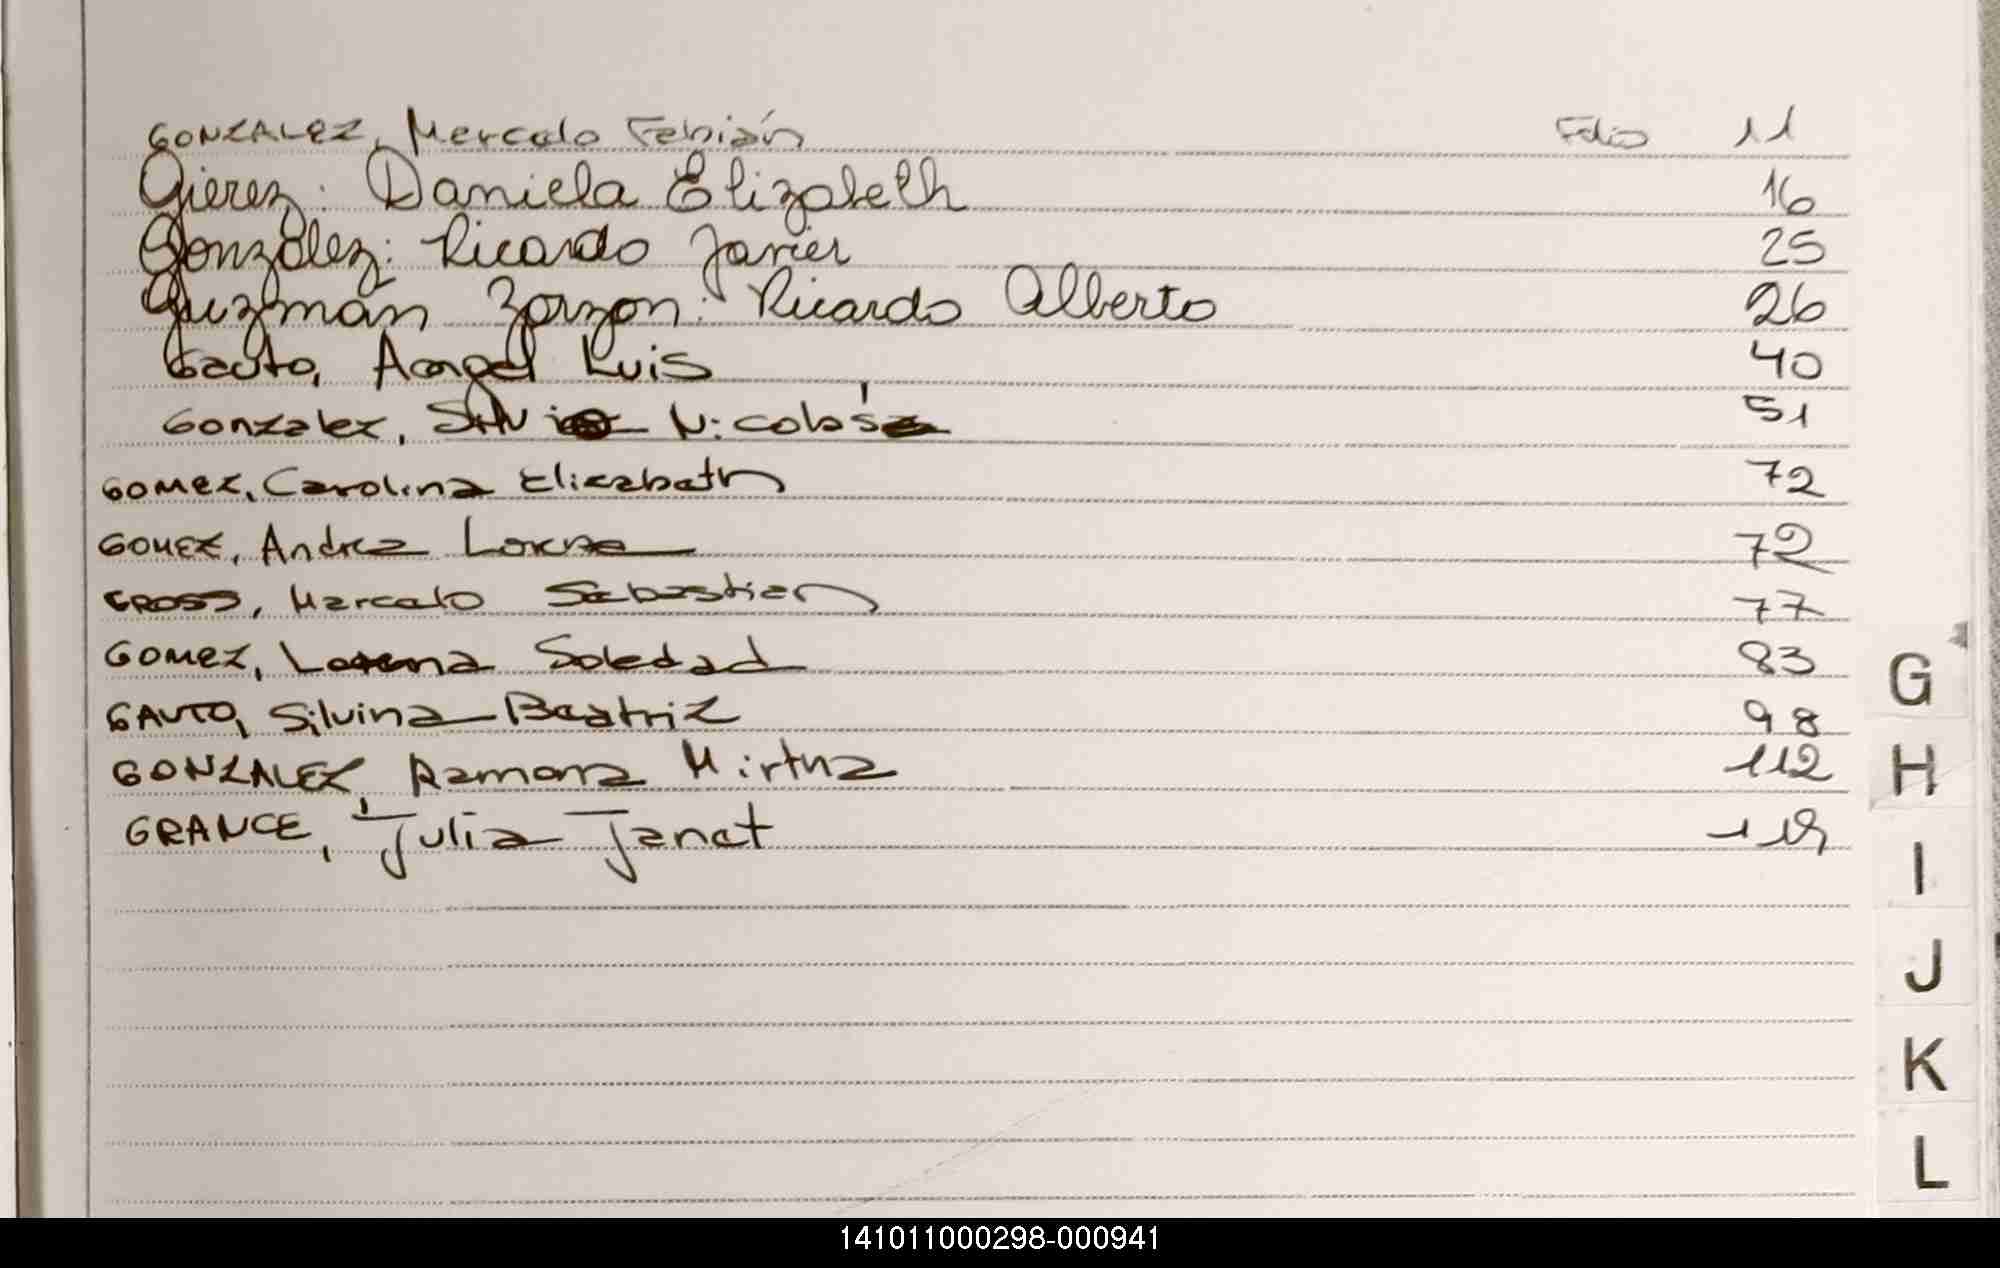 GONZALEZ, Mercelo Fabián Folio 11
Gierez: Daniela Elizabeth 16
González: Ricardo Javier 25
Guzmán Zorzon: Ricardo Alberto 26
Gauto, Angel Luis 40
Gonzalez, Silvio Nicolás 51
GOMEZ, Carolina Elizabeth 72
GOMEZ, Andrea Lorena 72
GROSS, Marcelo Sebastian 77
GOMEZ, Lorena Soledad 83
GAUTO, Silvina Beatriz 98
GONZALEZ, Ramona Mirtha 112
GRANCE, Julia Janet 119
G
H
I
J
K
L
141011000298-000941